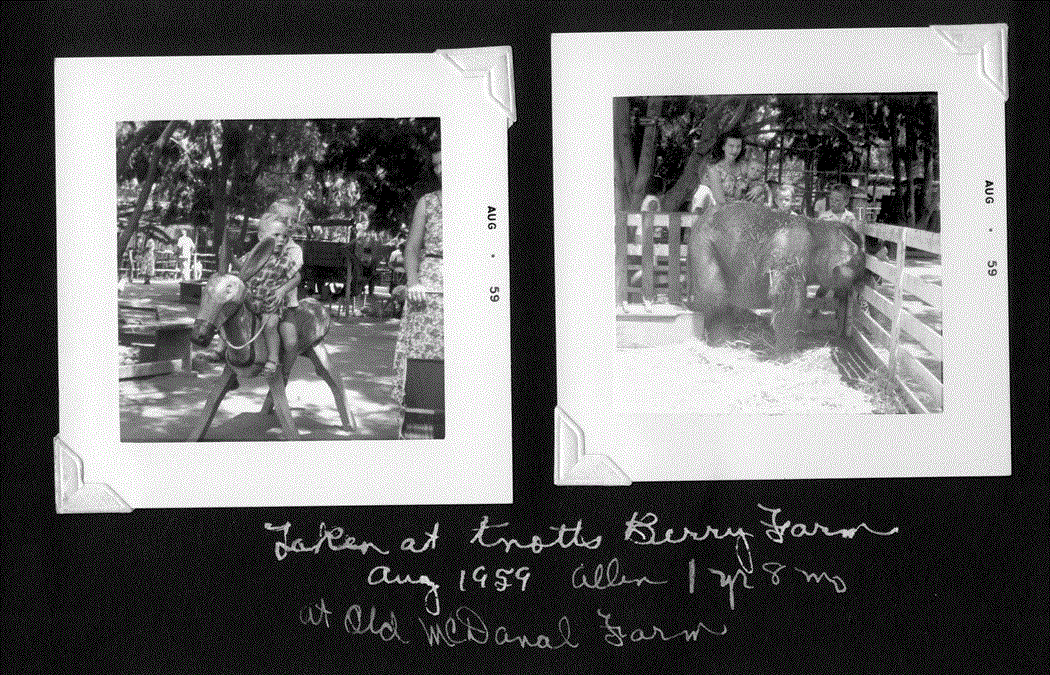 AUG · 59
AUG · 59
Taken at Knotts Berry Farm
Aug 1959 Allen 1 yr 8 mo
at Old McDanal Farm